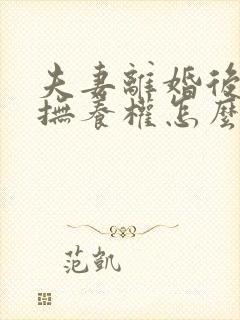 夫妻離婚後
撫養權怎麼
范凱